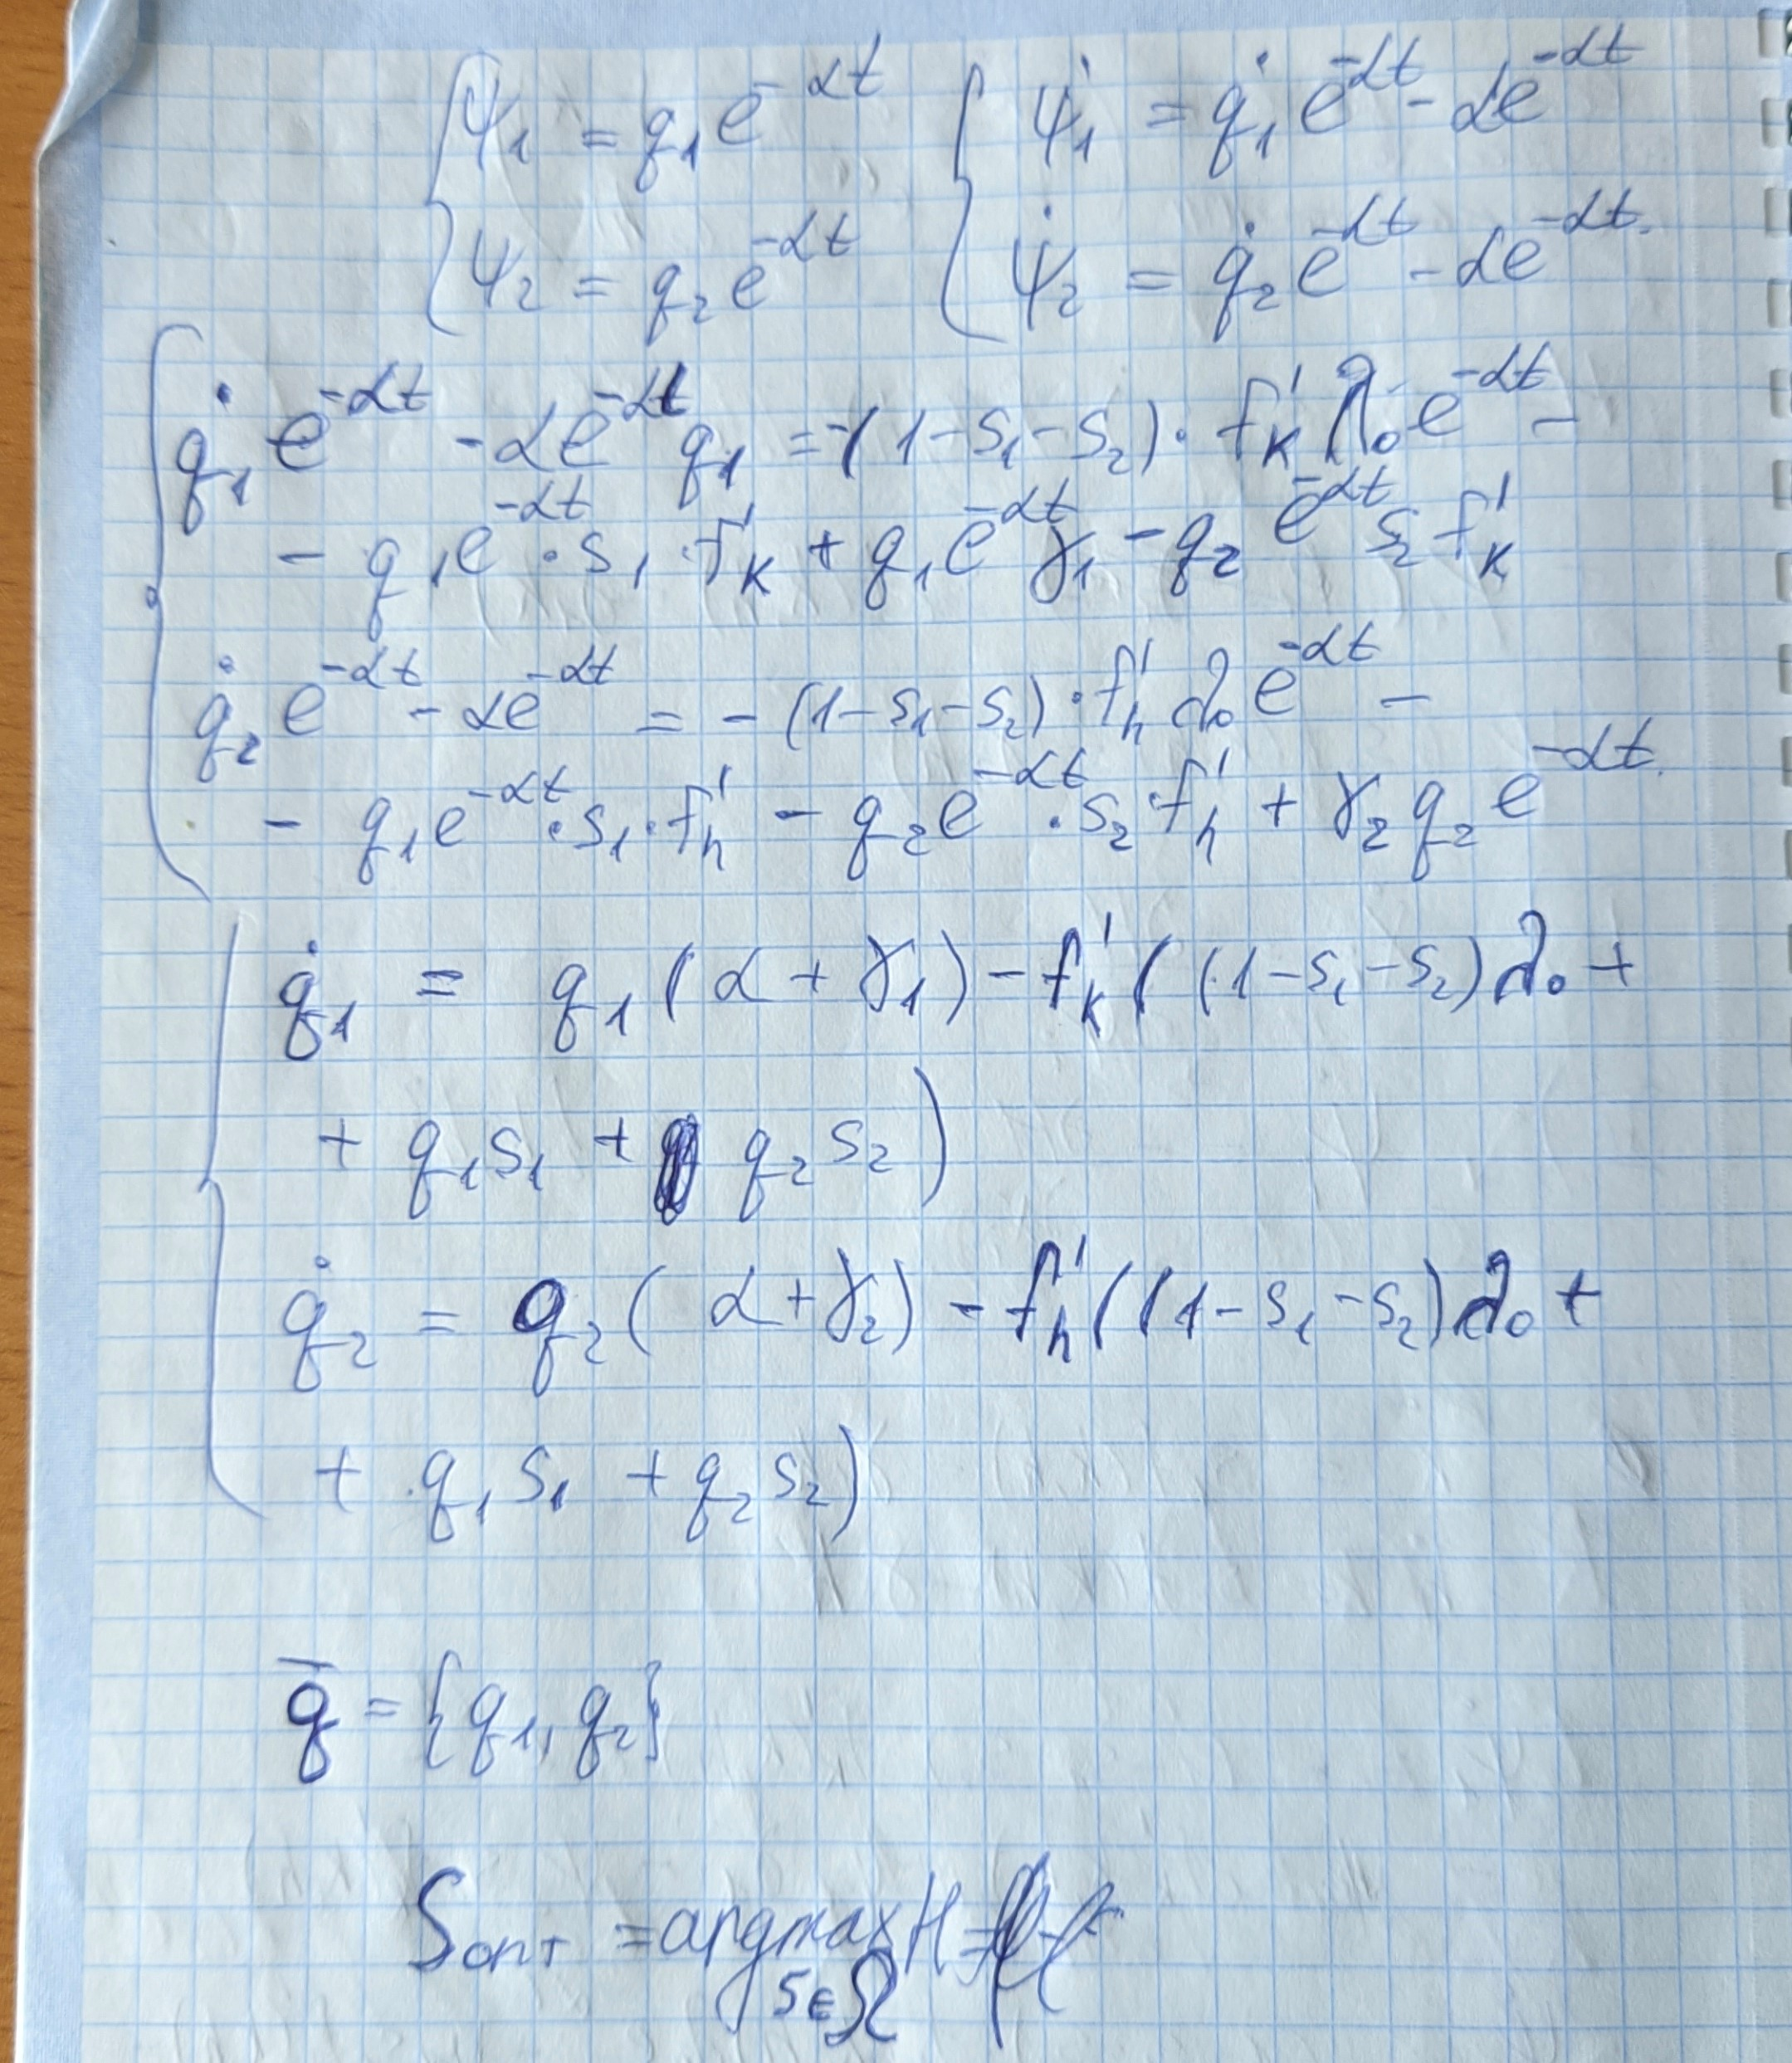 ψ₁ = q₁e^{-αt}   ψ̇₁ = q̇₁e^{-αt} - αe^{-αt}
ψ₂ = q₂e^{-αt}   ψ̇₂ = q̇₂e^{-αt} - αe^{-αt}.
q̇₁e^{-αt} - αe^{-αt}q₁ = -(1-s₁-s₂)·f'ₖ λ₀e^{-αt} -
- q₁e^{-αt}·s₁·f'ₖ + q₁e^{-αt}γ₁ - q₂e^{-αt}s₂f'ₖ
q̇₂e^{-αt} - αe^{-αt} = -(1-s₁-s₂)·f'ₕ λ₀e^{-αt} -
- q₁e^{-αt}·s₁·f'ₕ - q₂e^{-αt}·s₂·f'ₕ + γ₂q₂e^{-αt}.
q̇₁ = q₁(α+γ₁) - f'ₖ((1-s₁-s₂)λ₀ +
+ q₁s₁ + q₂s₂)
q̇₂ = q₂(α+γ₂) - f'ₕ((1-s₁-s₂)λ₀ +
+ q₁s₁ + q₂s₂)
q̄ = {q₁, q₂}
Sопт = argmax H =
s∈Ω